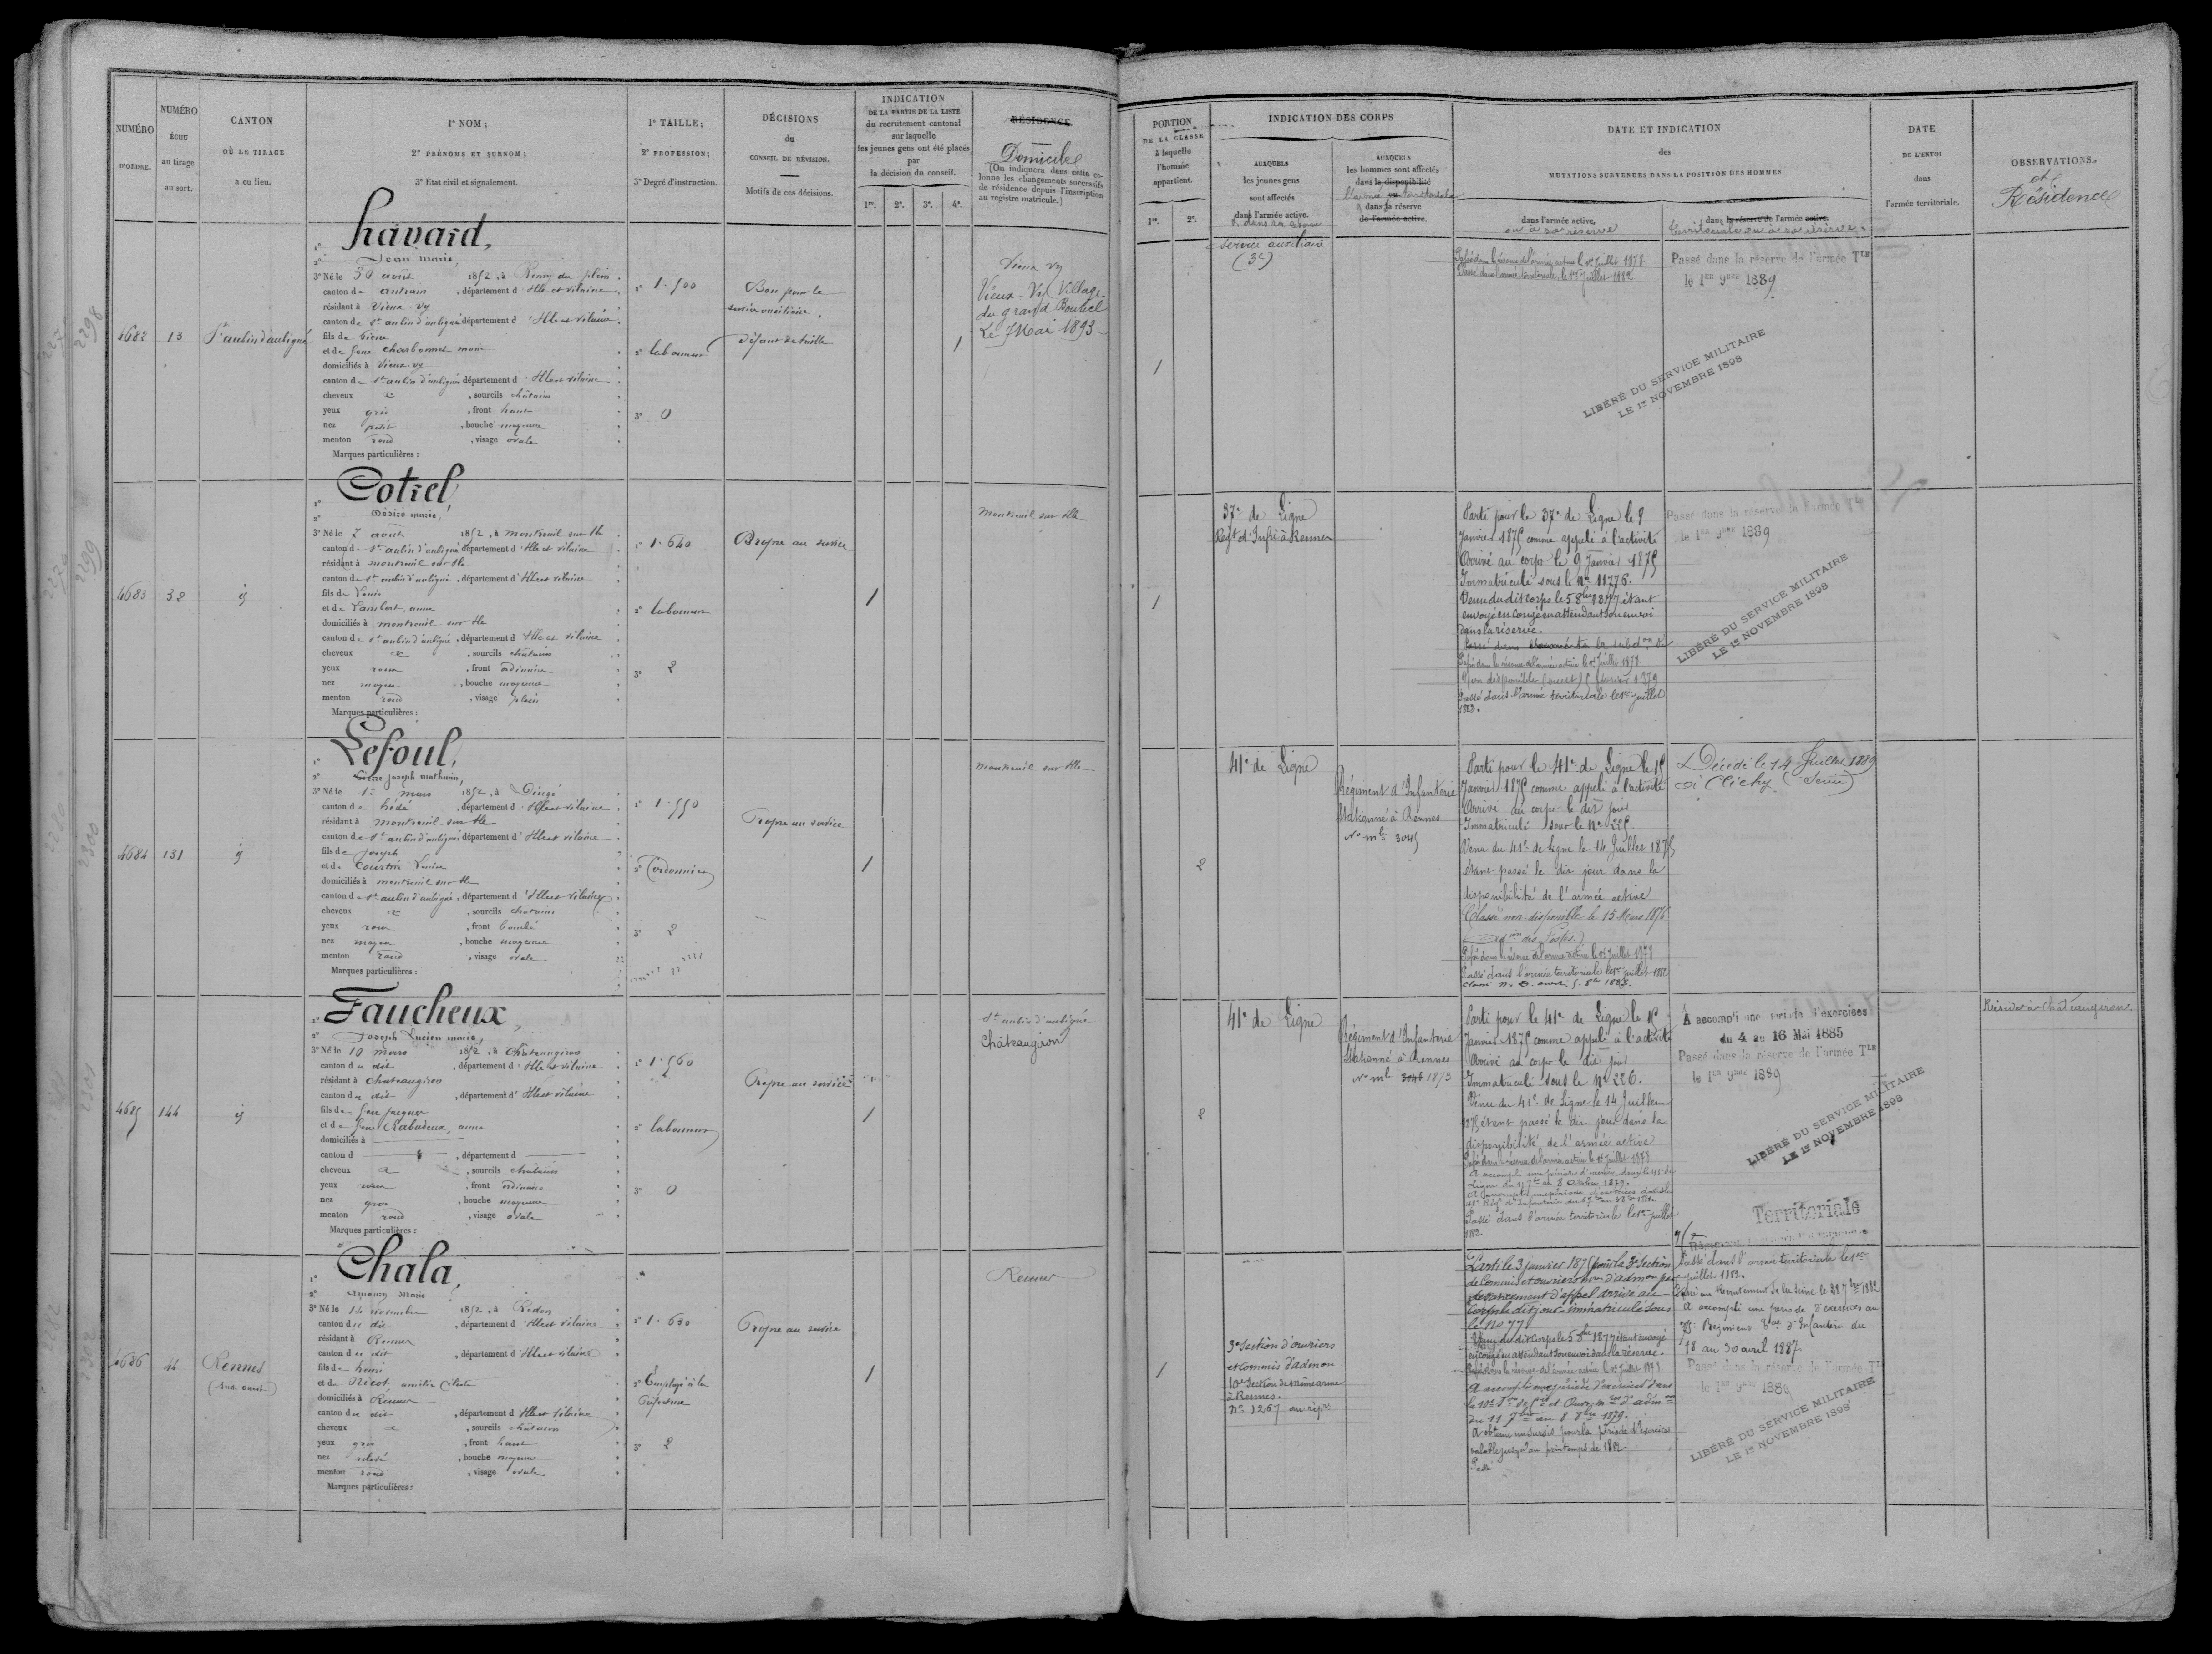 NUMÉRO
D'ORDRE.
NUMÉRO
ÉCHU
au tirage
au sort.
CANTON
OÙ LE TIRAGE
a eu lieu.
1° NOM ;
2° PRÉNOMS ET SURNOM ;
3° État civil et signalement.
1° TAILLE ;
2° PROFESSION ;
3° Degré d'instruction.
DÉCISIONS
du
CONSEIL DE RÉVISION.
Motifs de ces décisions.
INDICATION
DE LA PARTIE DE LA LISTE
du recrutement cantonal
sur laquelle
les jeunes gens ont été placés
par
la décision du conseil.
1re. 2e. 3e. 4e.
RÉSIDENCE
Domicile
(On indiquera dans cette co-
lonne les changements successifs
de résidence depuis l'inscription
au registre matricule.)
4682
13
St aubin d'aubigné
havard,
2° Jean marie,
3° Né le 30 août 1852, à
canton de antrain, département d'Ille et vilaine
résidant à Vieux-vy
canton de St aubin d'aubigné département d'Ille et vilaine
fils de
et de feue Charbonnel marie
domiciliés à Vieux-vy
canton de St aubin d'aubigné département d'Ille et vilaine
cheveux , sourcils châtains
yeux gris , front haut
nez petit , bouche moyenne
menton rond , visage ovale
Marques particulières :
1° 1.500
2° laboureur
3° 0
Bon pour le
service auxiliaire.
Défaut de taille
1
Vieux vy
Vieux-Vy Village
du grand
Le 7 Mai 1893
4683
32
Cotrel
2° Désiré marie,
3° Né le 7 août 1852, à montreuil sur Ille
canton de St aubin d'aubigné département d'Ille et vilaine
résidant à montreuil sur Ille
canton de St aubin d'aubigné, département d'Ille et vilaine
fils de Louis
et de Lambert anne
domiciliés à montreuil sur Ille
canton de St aubin d'aubigné, département d'Ille et vilaine
cheveux , sourcils châtains
yeux roux , front ordinaire
nez moyen , bouche moyenne
menton rond , visage plein
Marques particulières :
1° 1.640
2° laboureur
3° 2
Propre au service
1
montreuil sur Ille
4684
131
Lefoul,
2° joseph mathurin,
3° Né le mars 1852, à Dingé
canton de hédé, département d'Ille et vilaine
résidant à montreuil sur Ille
canton de St aubin d'aubigné département d'Ille et vilaine
fils de joseph
et de
domiciliés à montreuil sur Ille
canton de St aubin d'aubigné, département d'Ille et vilaine
cheveux , sourcils châtains
yeux roux , front bombé
nez moyen , bouche moyenne
menton rond , visage ovale
Marques particulières :
1° 1.550
2° Cordonnier
3° 2
Propre au service
1
montreuil sur Ille
4685
144
Faucheux,
2° Joseph Lucien marie,
3° Né le 10 mars 1852, à Châteaugiron
canton du dit, département d'Ille et vilaine
résidant à Chateaugiron
canton du dit, département d'Ille et vilaine
fils de feu jacques
et de feue anne
domiciliés à
canton d , département d
cheveux , sourcils châtains
yeux roux , front ordinaire
nez gros , bouche moyenne
menton rond , visage ovale
Marques particulières :
1° 1.560
2° laboureur
3° 0
Propre au service
1
St aubin d'aubigné
Châteaugiron
4686
44
Rennes
Chala,
2° Amaury Marie
3° Né le 14 novembre 1852, à Redon
canton du dit, département d'Ille et vilaine
résidant à Rennes
canton du dit, département d'Ille et vilaine
fils de henri
et de Nicot amélie Céleste
domiciliés à Rennes
canton du dit, département d'Ille et Vilaine
cheveux , sourcils châtains
yeux gris , front haut
nez relevé , bouche moyenne
menton rond , visage ovale
Marques particulières :
2° Employé à la
Préfecture
3° 2
Propre au service
1
Rennes
PORTION
DE LA CLASSE
à laquelle
l'homme
appartient.
1re. 2e.
INDICATION DES CORPS
AUXQUELS
les jeunes gens
sont affectés
dans l'armée active.
AUXQUELS
les hommes sont affectés
dans la disponibilité
l'armée territoriale
dans la réserve
de l'armée active.
DATE ET INDICATION
des
MUTATIONS SURVENUES DANS LA POSITION DES HOMMES
dans l'armée active.
ou à sa réserve
dans la réserve de l'armée active.
territoriale ou à sa réserve.
DATE
DE L'ENVOI
dans
l'armée territoriale.
OBSERVATIONS.
et
Résidence
1
Service auxiliaire
(3e)
Passé dans la réserve de l'armée active le 1er Juillet 1878
Passé dans l'armée territoriale le 1er Juillet 1882
Passé dans la réserve de l'armée Tle
le 1er 9bre 1889.
LIBÉRÉ DU SERVICE MILITAIRE
LE 1er NOVEMBRE 1898
1
37e de Ligne
Regt d'Infie à Rennes
Parti pour le 37e de Ligne le 8
Janvier 1875 comme appelé à l'activité
Arrivé au corps le 9 Janvier 1875
Immatriculé sous le No 11776.
Venu du dit corps le 5 8bre 1877 étant
envoyé en congé en attendant son envoi
dans la réserve.
Passé dans la réserve de l'armée active le 1er Juillet 1878
Non disponible (ouest) 5 février 1879
Passé dans l'armée territoriale le 1er juillet
1882.
Passé dans la réserve de l'armée Tle
le 1er 9bre 1889
LIBÉRÉ DU SERVICE MILITAIRE
LE 1er NOVEMBRE 1898
2
41e de Ligne
Régiment d'Infanterie
stationné à Rennes
No mle 3045
Parti pour le 41e de Ligne le 15
Janvier 1875 comme appelé à l'activité
Arrivé au corps le dit jour
Immatriculé sous le No 225.
Venu du 41e de Ligne le 14 Juillet 1875
étant passé le dit jour dans la
disponibilité de l'armée active
Classé non disponible le 15 Mars 1876
(Adon des Postes.)
Passé dans la réserve de l'armée active le 1er Juillet 1878
Passé dans l'armée territoriale le 1er juillet 1882
Décédé le 14 Juillet 1889
à Clichy (Seine)
2
41e de Ligne
Régiment d'Infanterie
Stationné à Rennes
No mle 3046 1873
Parti pour le 41e de Ligne le 15
Janvier 1875 comme appelé à l'activité
Arrivé au corps le dit jour
Immatriculé sous le No 226.
Venu du 41e de Ligne le 14 Juillet
1875 étant passé le dit jour dans la
disponibilité de l'armée active
Passé dans la réserve de l'armée active le 1er Juillet 1878
A accompli une période d'exercice dans le 41e de
Ligne du 8 Octobre 1879.
Passé dans l'armée territoriale le 1er juillet
1882.
A accompli une période d'exercices
du 4 au 16 Mai 1885
Passé dans la réserve de l'armée Tle
le 1er 9bre 1889
LIBÉRÉ DU SERVICE MILITAIRE
LE 1er NOVEMBRE 1898
Territoriale
Réside à Châteaugiron.
1
3e Section d'ouvriers
et Commis d'admon
10e Section de même arme
à Rennes.
No 1267 au répre
Parti le 3 janvier 1875 pour la 3e Section
de Commis et ouvriers mres d'admon par
devancement d'appel arrivé au
corps le dit jour immatriculé sous
le No 77.
Venu du dit Corps le 5 8bre 1877 étant envoyé
en congé en attendant son envoi dans la réserve.
Passé dans la réserve de l'armée active le 1er Juillet 1878
A accompli une période d'exercices dans
du 11 7bre au 8 8bre 1879.
A obtenu un sursis pour la période d'exercices
valable jusqu'au printemps de 1882
Passé
Passé dans l'armée territoriale le 1er
juillet 1882.
Passé au Recrutement de la Seine le 28 7bre 1882
A accompli une pérode d'exercices au
Régiment d'Infanterie du
18 au 30 avril 1887
Passé dans la réserve de l'armée Tle
le 1er 9bre 1889
LIBÉRÉ DU SERVICE MILITAIRE
LE 1er NOVEMBRE 1898